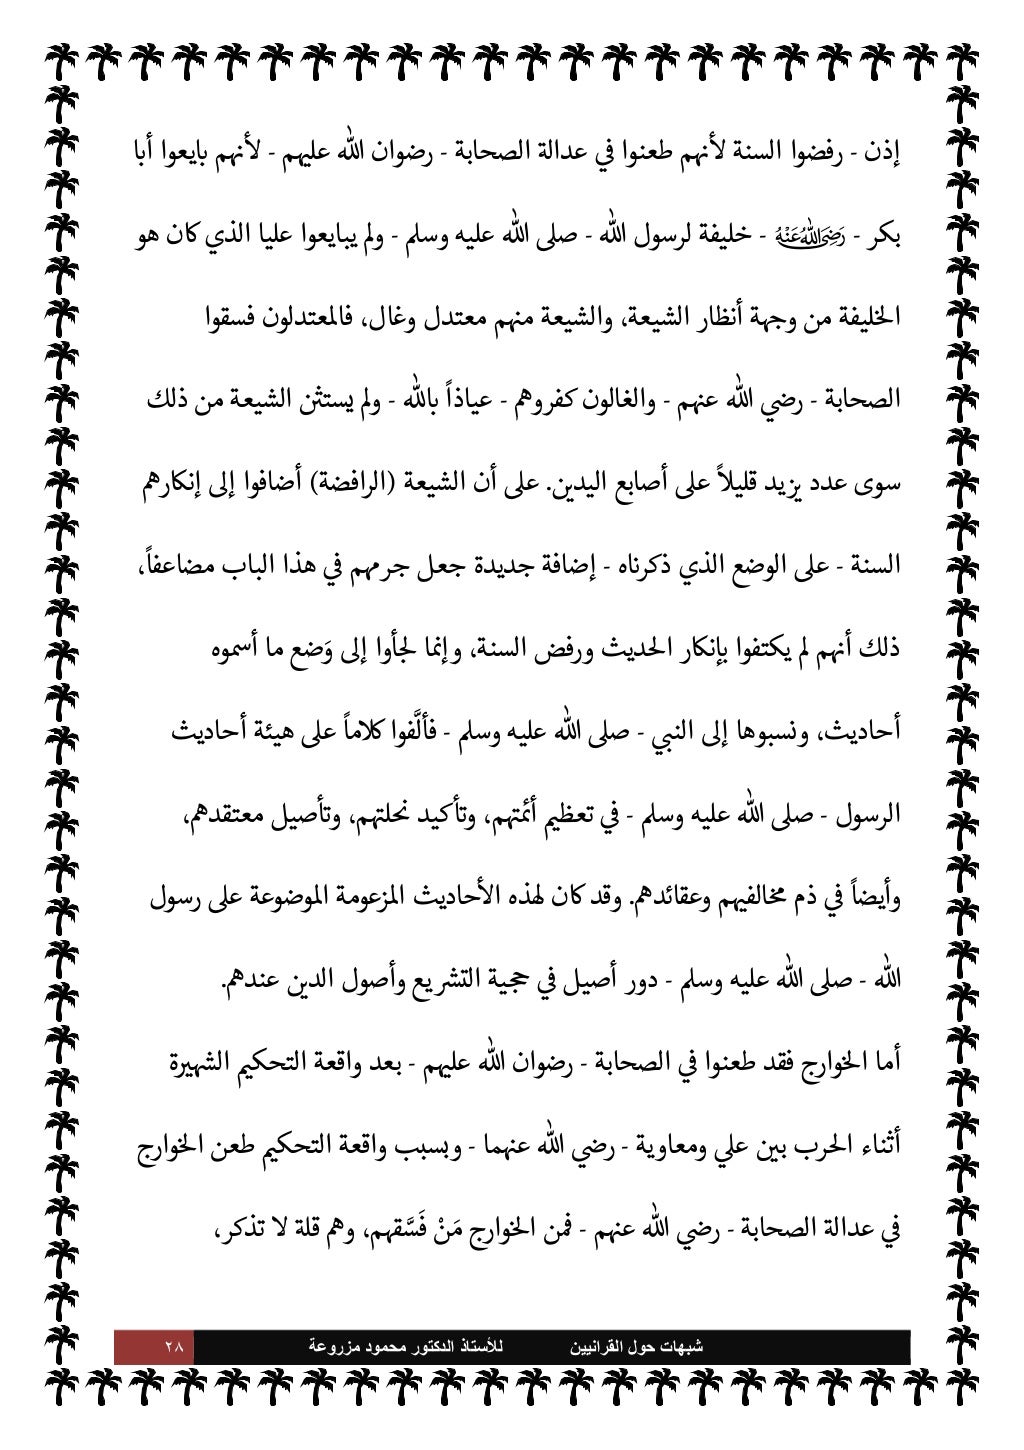 إذن - رفضوا السنة لأنهم طعنوا في عدالة الصحابة - رضوان الله عليهم - لأنهم بايعوا أبا
بكر - رَضِيَ اللهُ عَنْهُ - خليفة لرسول الله - صلى الله عليه وسلم - ولم يبايعوا عليا الذي كان هو
الخليفة من وجهة أنظار الشيعة، والشيعة منهم معتدل وغال، فالمعتدلون فسقوا
الصحابة - رضي الله عنهم - والغالون كفروهم - عياذاً بالله - ولم يستثن الشيعة من ذلك
سوى عدد يزيد قليلاً على أصابع اليدين. على أن الشيعة (الرافضة) أضافوا إلى إنكارهم
السنة - على الوضع الذي ذكرناه - إضافة جديدة جعل جرمهم في هذا الباب مضاعفاً،
ذلك أنهم لم يكتفوا بإنكار الحديث ورفض السنة، وإنما لجأوا إلى وَضع ما أسموه
أحاديث، ونسبوها إلى النبي - صلى الله عليه وسلم - فألَّفوا كلاماً على هيئة أحاديث
الرسول - صلى الله عليه وسلم - في تعظيم أئمتهم، وتأكيد نحلتهم، وتأصيل معتقدهم،
وأيضاً في ذم مخالفيهم وعقائدهم. وقد كان لهذه الأحاديث المزعومة الموضوعة على رسول
الله - صلى الله عليه وسلم - دور أصيل في حجية التشريع وأصول الدين عندهم.
أما الخوارج فقد طعنوا في الصحابة - رضوان الله عليهم - بعد واقعة التحكيم الشهيرة
أثناء الحرب بين علي ومعاوية - رضي الله عنهما - وبسبب واقعة التحكيم طعن الخوارج
في عدالة الصحابة - رضي الله عنهم - فمن الخوارج مَنْ فَسَّقهم، وهم قلة لا تذكر،
شبهات حول القرانيين للأستاذ الدكتور محمود مزروعة ٢٨